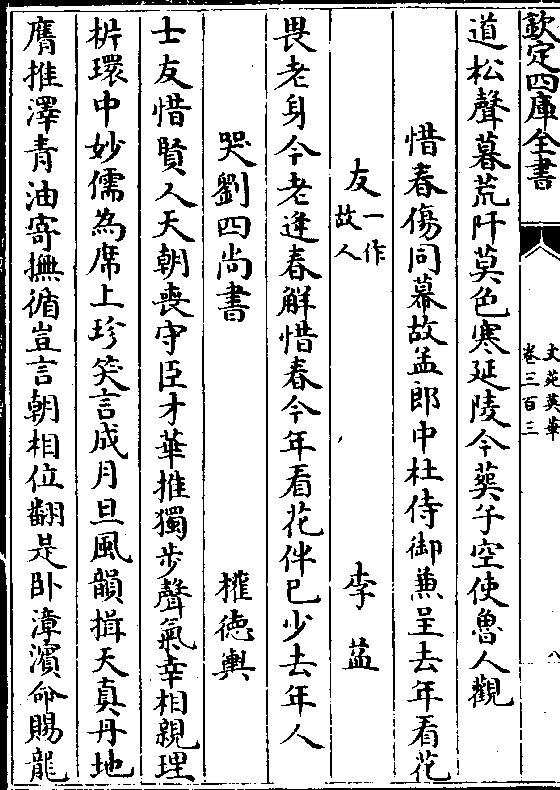 欽定四庫全書
文苑英華
卷三百三
八
道松聲暮荒阡莫色寒延陵今葬子空使魯人觀
惜春傷同幕故孟郎中杜侍御兼呈去年看花
友一作故人
李益
畏老身今老逢春解惜春今年看花伴已少去年人
哭劉四尚書
權徳輿
士友惜賢人天朝喪守臣才華推獨步聲氣幸相親理
析環中妙儒為席上珍笑言成月旦風韻揖天真丹地
膺推澤青油寄撫循豈言朝相位翻是卧漳濱命賜龍